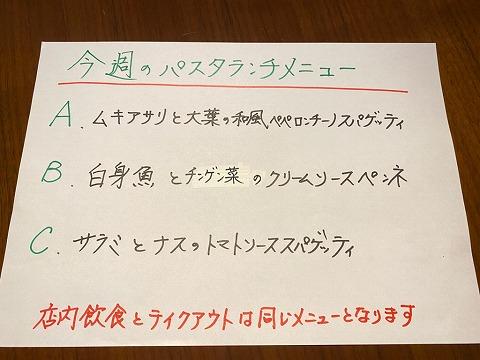 今週のパスタランチメニュー
A. ムキアサリと大葉の和風ペペロンチーノスパゲッティ
B. 白身魚とチンゲン菜のクリームソースペンネ
C. サラミとナスのトマトソーススパゲッティ
店内飲食とテイクアウトは同じメニューとなります